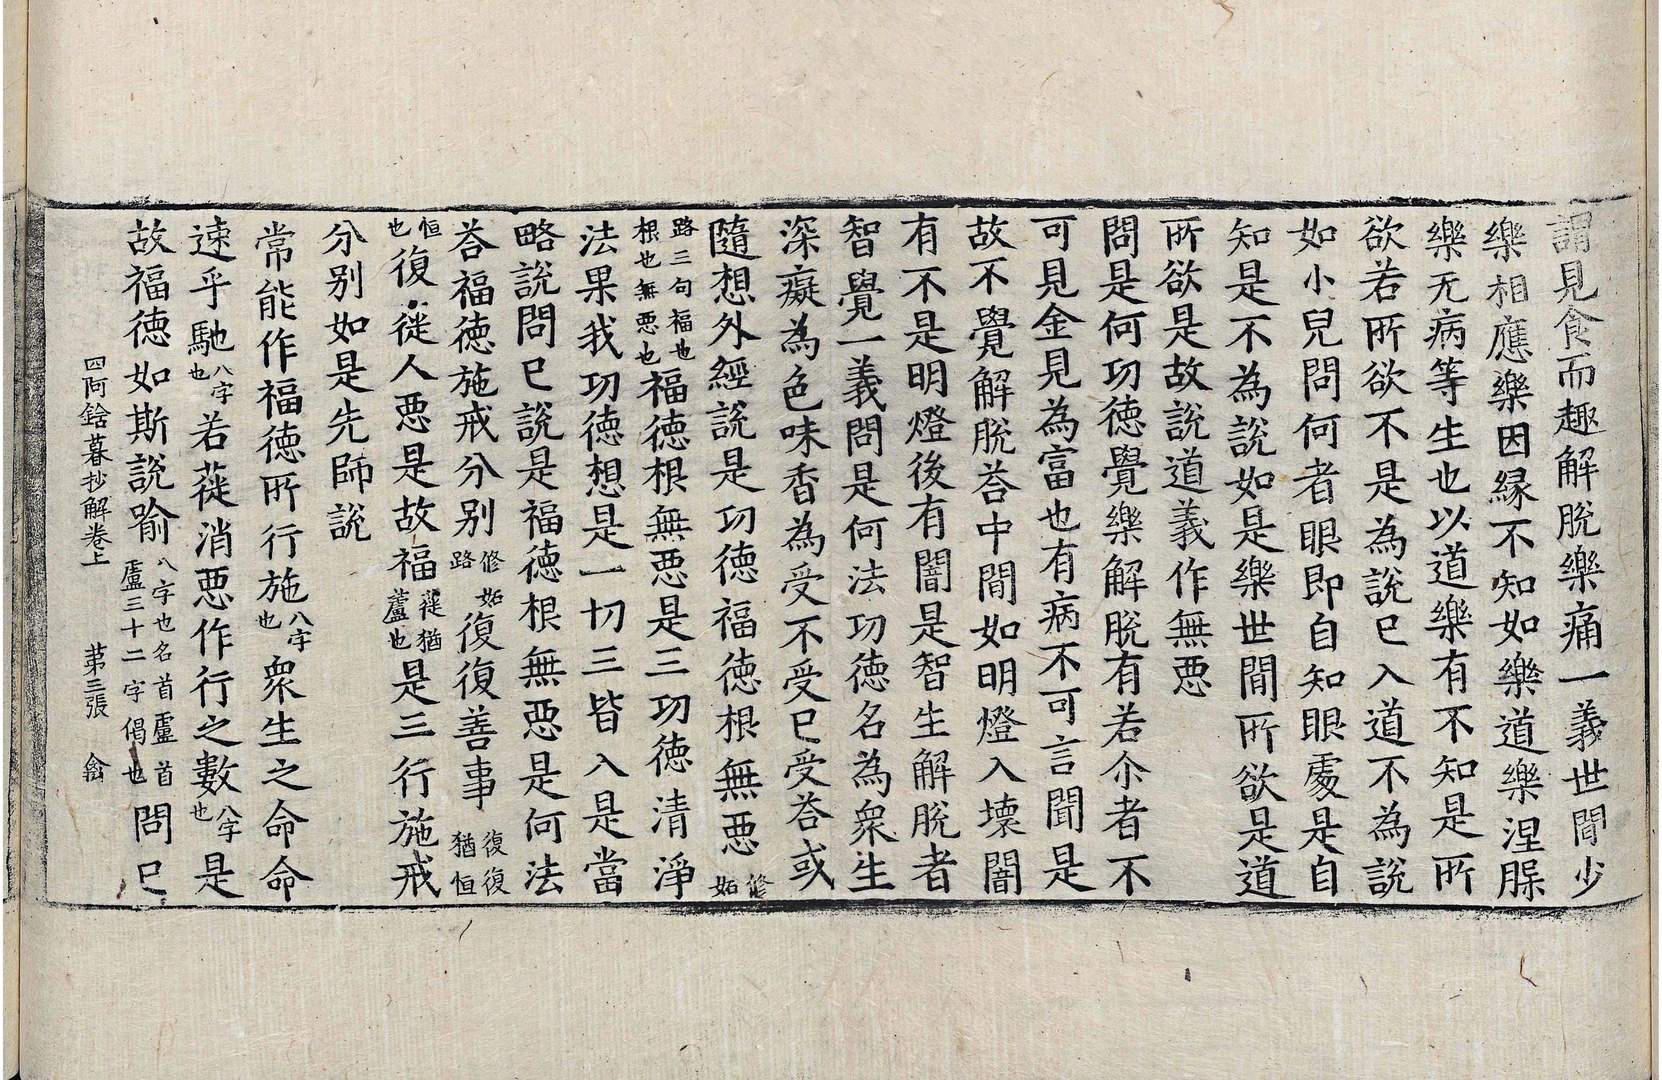 謂見食而趣解脫樂痛一義世間少
樂相應樂因緣不知如樂道樂涅𣊓
樂无病等生也以道樂有不知是所
欲若所欲不是為說已入道不為說
如小兒問何者眼即自知眼處是自
知是不為說如是樂世間所欲是道
所欲是故說道義作無惡
問是何功德覺樂解脫有若尒者不
可見金見為富也有病不可言聞是
故不覺解脫荅中間如明燈入壞闇
有不是明燈後有闇是智生解脫者
智覺一義問是何法功德名為衆生
深癡為色味香為受不受已受荅或
隨想外經說是功德福德根無惡修妬
路三句福也根也無惡也福德根無惡是三功德清淨
法果我功德想是一切三皆入是當
略說問已說是福德根無惡是何法
荅福德施戒分別修妬路復復善事復復猶恒
恒也復蓰人惡是故福蓰猶蘆也是三行施戒
分別如是先師說
常能作福德所行施八字也衆生之命命
速乎馳八字也若蓰消惡作行之數八字也是
故福德如斯說喻八字也名首盧首盧三十二字偈也問已
四阿鋡暮抄解卷上　第三張　㑹